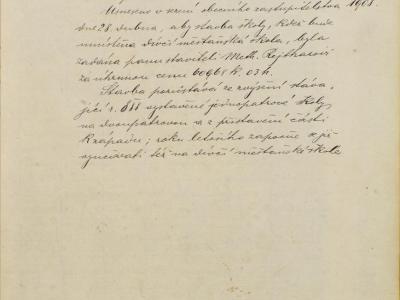 Usneseno v sezení obecního zastupitelstva 1908.
dne 28. dubna, aby stavba školy, kde bude
umístěna dívčí měšťanská škola, byla
zadána panu staviteli Meth. Rejthárovi
za úhrnnou cenu 60968 K. 03 h.
Stavba pozůstává ze zvýšení stáva-
jící r. 188 vystavěné jednopatrové školy
na dvoupatrovou a z přístavění části
k západu; roku letošního započne se již
vyučovati též na dívčí měšťanské škole.